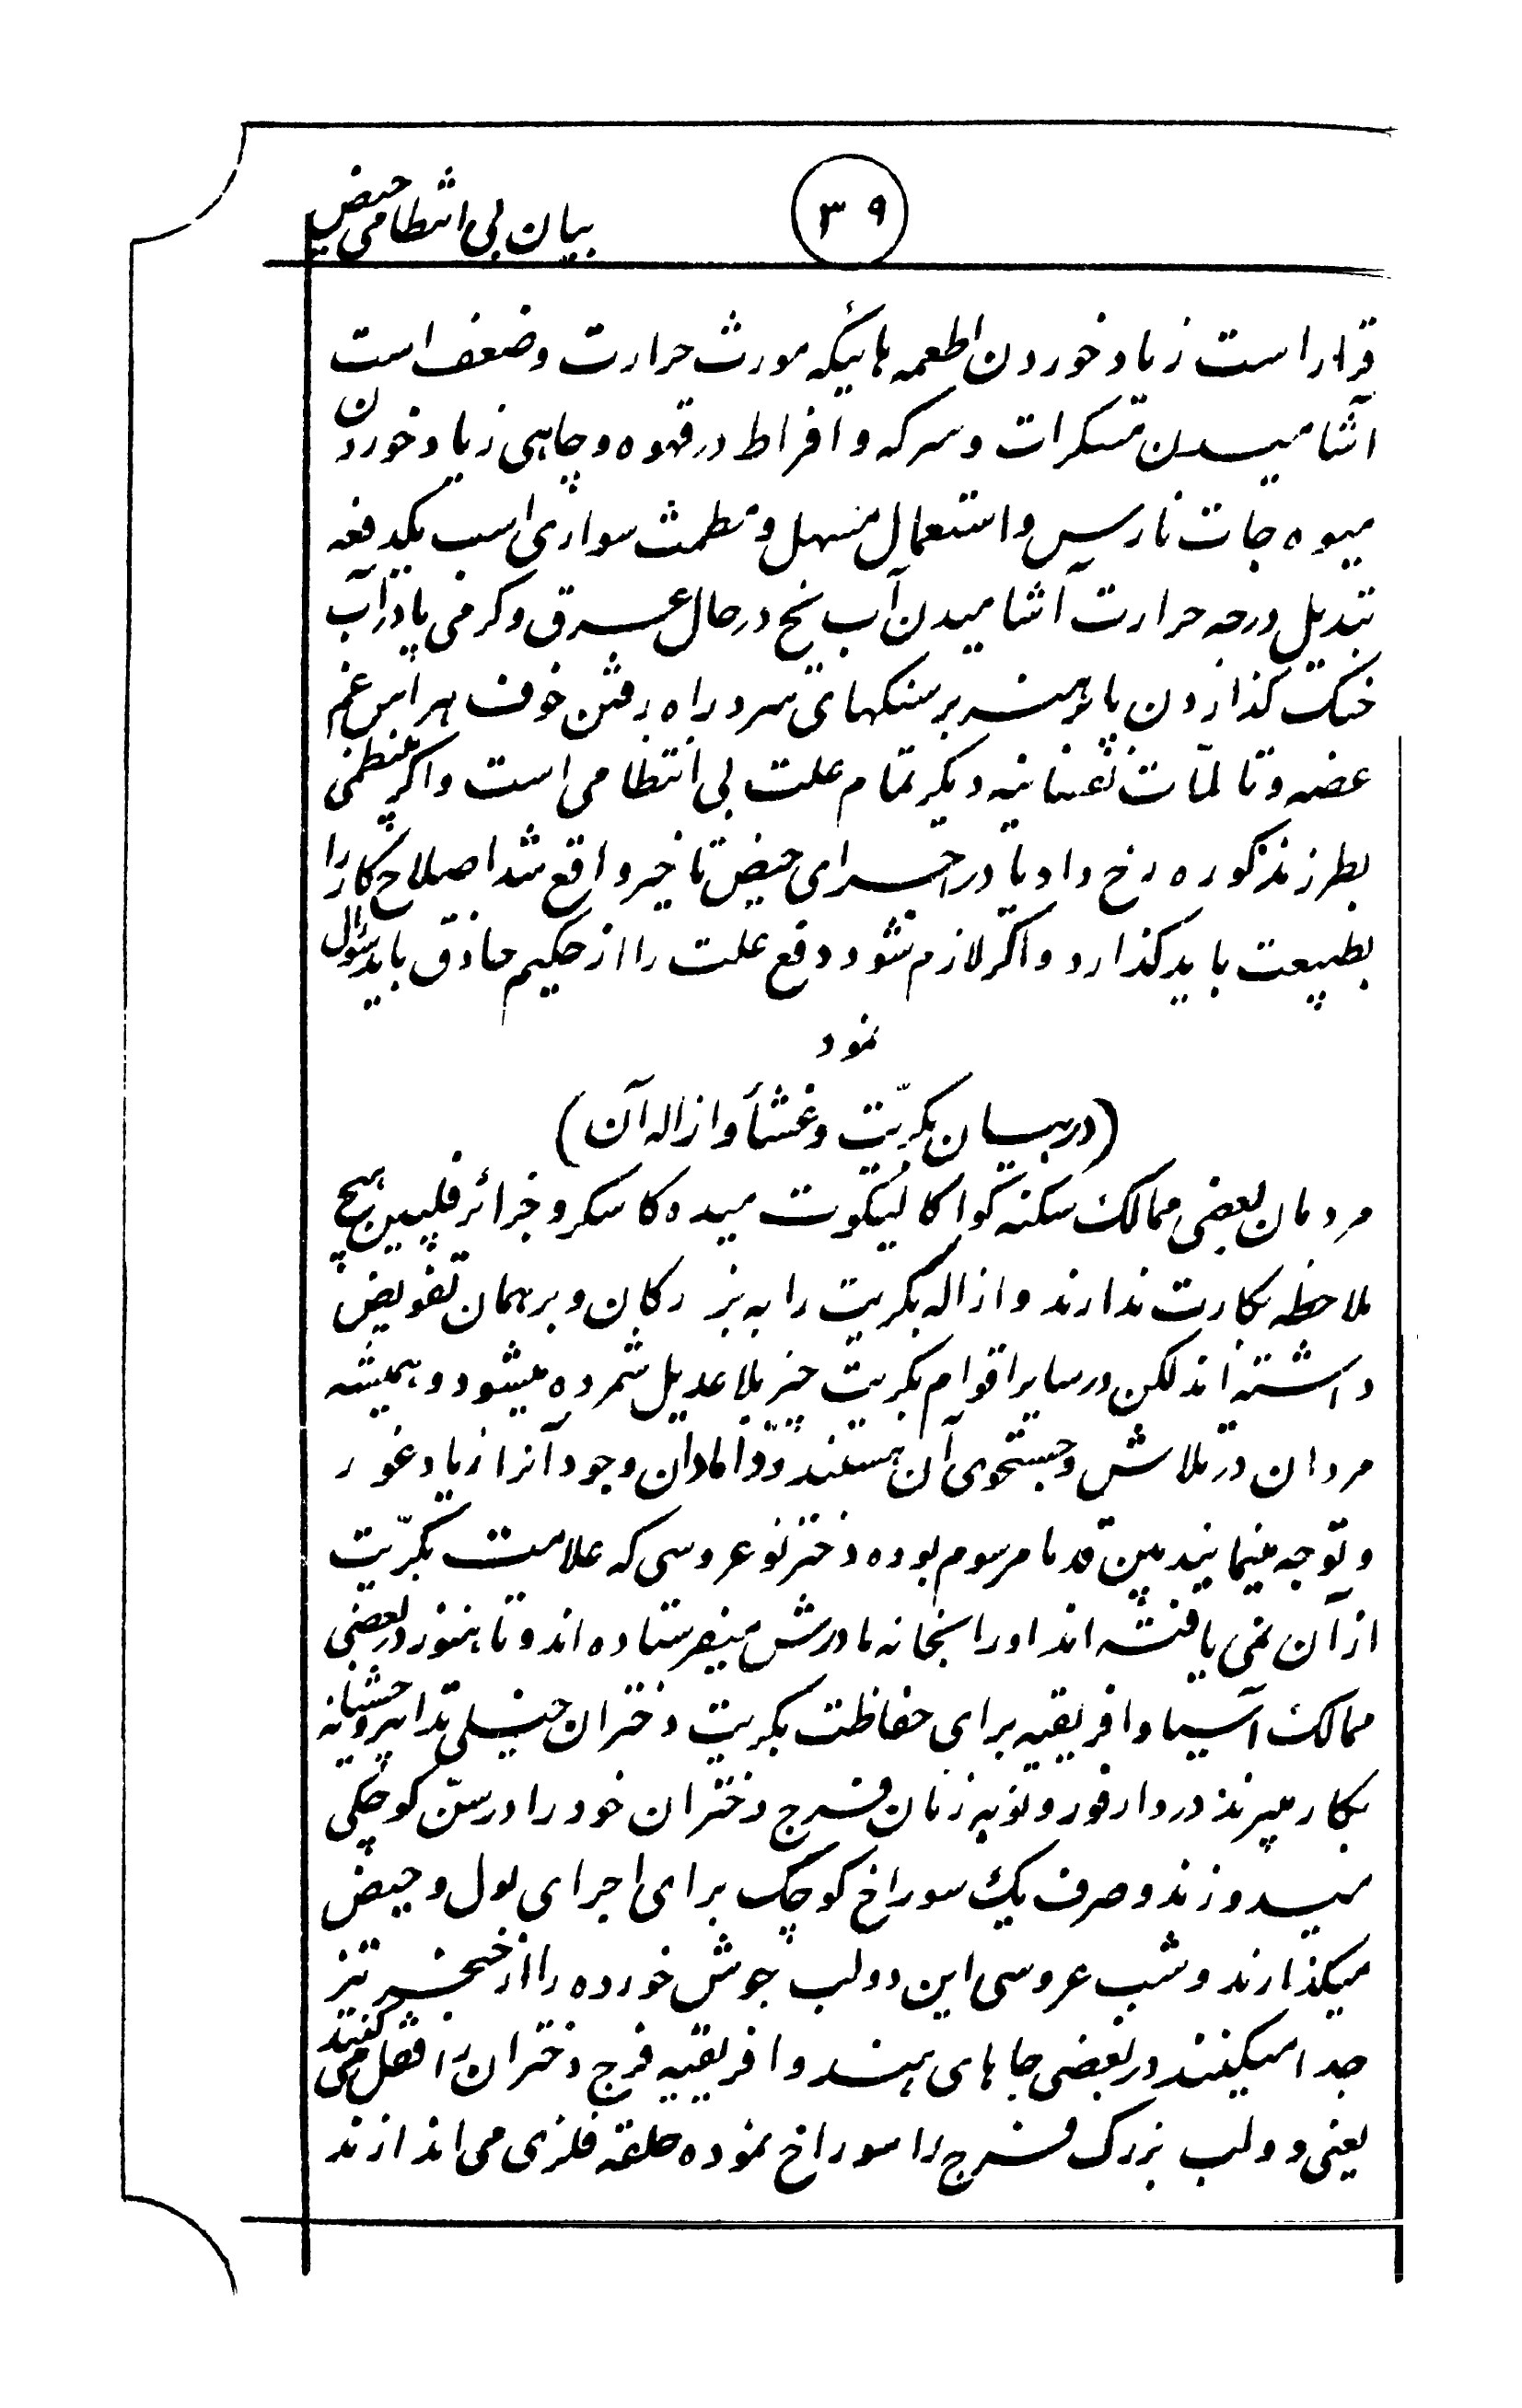 ۳۹
بیان بی انتظامی حیض
قرار است زیاد خوردن اطعمه هائیکه مورث حرارت وضعف است
آشامیدن مسکرات وسرکه وافراط درقهوه وچاهی زیاد خوردن
میوه جات نارس واستعمال مسهل ومطمث سواری اسب یکدفعه
تبدیل درجه حرارت آشامیدن آب یخ درحال عرق وکرمی پادرآب
خنک کذاردن پابرهنه برسنکهای سرد راه رفتن خوف هراس غم
غصه وتالمات نفسانیه دیکر تمام علت بی انتظامی است واکر بینظمی
بطرز مذکوره رخ داد یا دراجرای حیض تاخیر واقع شد اصلاح کاررا
بطبیعت باید کذارد واکر لازم شود دفع علت را از حکیم حاذق باید سؤال
نمود
(دربیان بکریّت وغشأ وازاله آن)
مردمان بعضی ممالک سکنه کوا کالیکوت میده کاسکر وجزائر فلیپین هیچ
ملاحظه بکارت ندارند وازاله بکریت را به بزرکان وبرهمان تفویض
داشته اند لکن درسایر اقوام بکریت چیز بلاعدیل شمرده میشود وهمیشه
مردان درتلاش وجستجوی آن هستند ووالدان وجود آنرا زیاد غور
وتوجه مینمایند بین قدما مرسوم بوده دختر نوعروسی که علامت بکریّت
ازآن نمی یافته اند اورا بخانه مادرش میفرستاده اند وتا هنوز دربعضی
ممالک آسیا وافریقیه برای حفاظت بکریت دختران خیلی تدابیر وحشیانه
بکار میبرند دردارفور ونوبه زنان فرج دختران خود را درسنّ کوچکی
میدوزند وصرف یک سوراخ کوچک برای اجرای بول وحیض
میکذارند وشب عروسی این دولب جوش خورده را از خنجر تیز
جدا میکنند دربعضی جاهای هند وافریقیه فرج دختران را قفل می کنند
یعنی دولب بزرک فرج را سوراخ نموده حلقه فلزی می اندازند